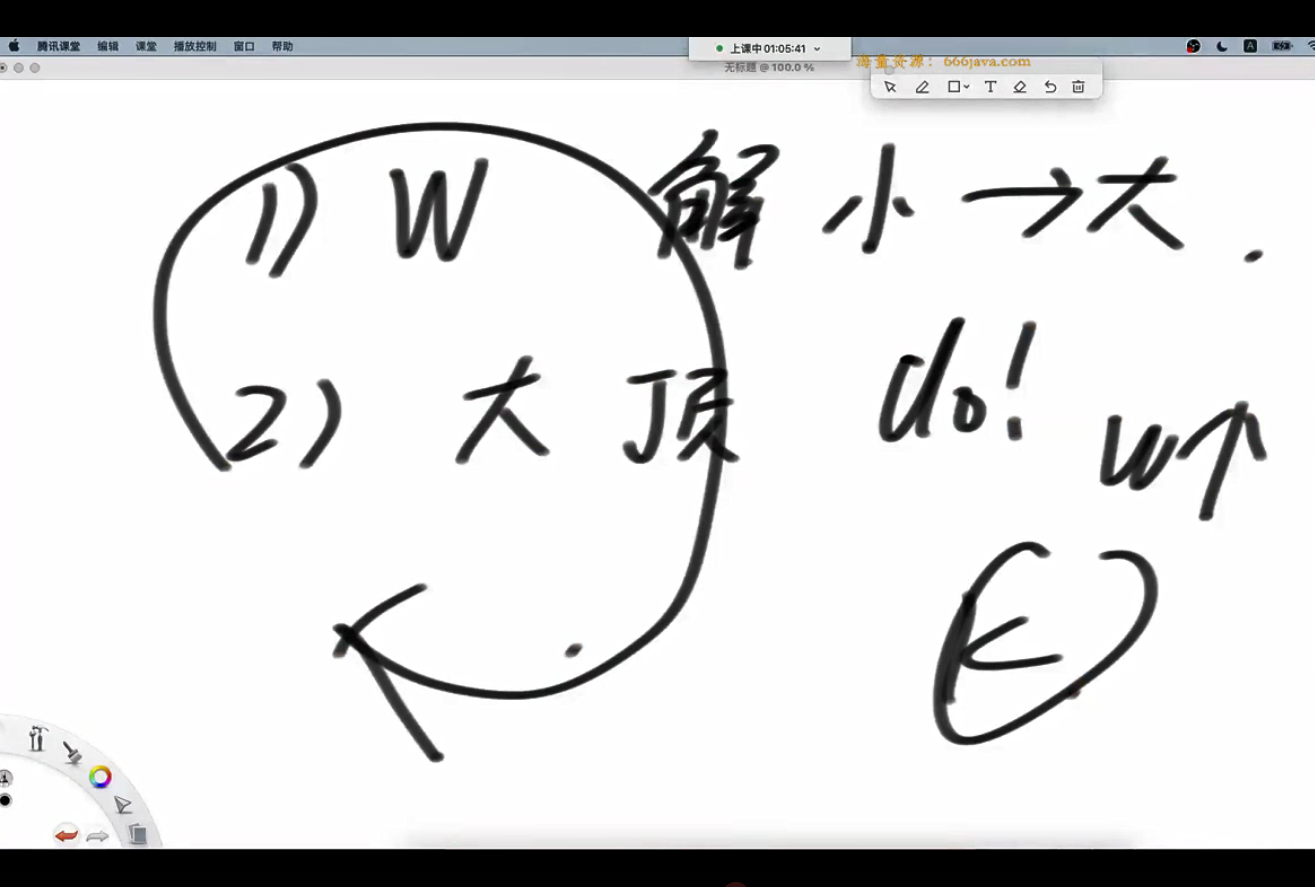 腾讯课堂 编辑 课堂 播放控制 窗口 帮助
上课中 01:05:41
A
无标题 @ 100.0 %
海量资源：666java.com
T
1) W 解 小→大.
2) 大顶 do!
W↑